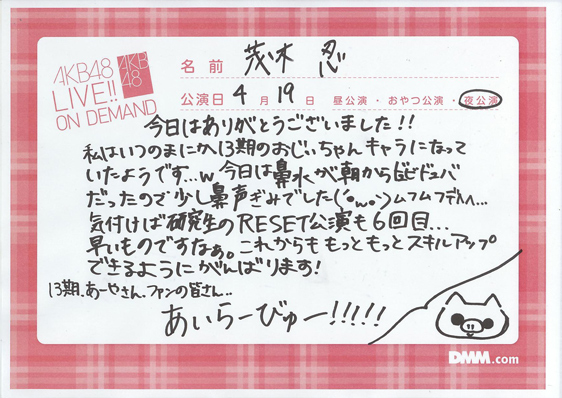 AKB48
LIVE!!
ON DEMAND
AKB
48
名前 茂木 忍
公演日 4月19日 昼公演・おやつ公演・夜公演
今日はありがとうございました!!
私はいつのまにか13期のおじぃちゃんキャラになって
いたようです…w 今日は鼻水が朝から
だったので少し鼻声ぎみでした(´•ω•`)ムフムフデヘヘ…
気付けば研究生のRESET公演も6回目…
早いものですなぁ。これからももっともっとスキルアップ
できるようにがんばります!
13期、あーやさん、ファンの皆さん..
あいらーびゅー!!!!!
DMM.com